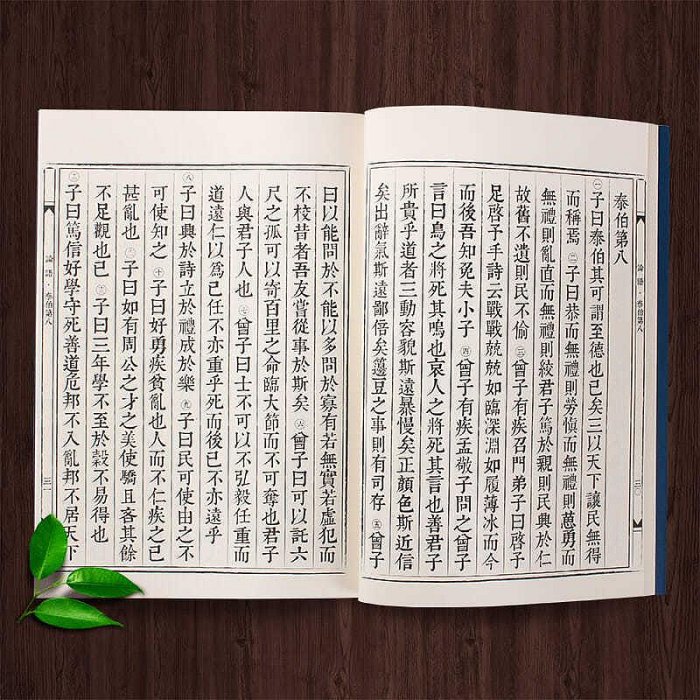 論語·泰伯第八
三〇
泰伯第八
㊀子曰泰伯其可謂至德也已矣三以天下讓民無得
而稱焉 ㊁子曰恭而無禮則勞慎而無禮則葸勇而
無禮則亂直而無禮則絞君子篤於親則民興於仁
故舊不遺則民不偷 ㊂曾子有疾召門弟子曰啓予
足啓予手詩云戰戰兢兢如臨深淵如履薄冰而今
而後吾知免夫小子 ㊃曾子有疾孟敬子問之曾子
言曰鳥之將死其鳴也哀人之將死其言也善君子
所貴乎道者三動容貌斯遠暴慢矣正顏色斯近信
矣出辭氣斯遠鄙倍矣籩豆之事則有司存 ㊄曾子
曰以能問於不能以多問於寡有若無實若虛犯而
不校昔者吾友嘗從事於斯矣 ㊅曾子曰可以託六
尺之孤可以寄百里之命臨大節而不可奪也君子
人與君子人也 ㊆曾子曰士不可以不弘毅任重而
道遠仁以爲己任不亦重乎死而後已不亦遠乎
㊇子曰興於詩立於禮成於樂 ㊈子曰民可使由之不
可使知之 ㊉子曰好勇疾貧亂也人而不仁疾之已
甚亂也 子曰如有周公之才之美使驕且吝其餘
不足觀也已 子曰三年學不至於穀不易得也
子曰篤信好學守死善道危邦不入亂邦不居天下
論語·泰伯第八
三一